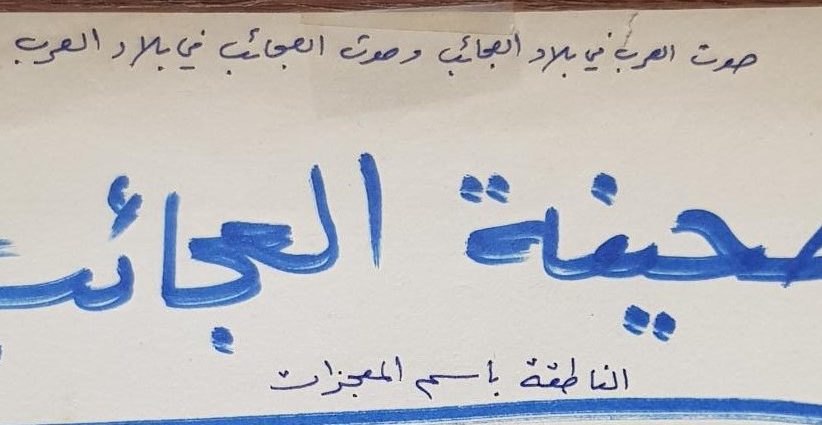 صوت العرب في بلاد العجائب وصوت العجائب في بلاد العرب
صحيفة العجائب
الناطقة بأسم المعجزات